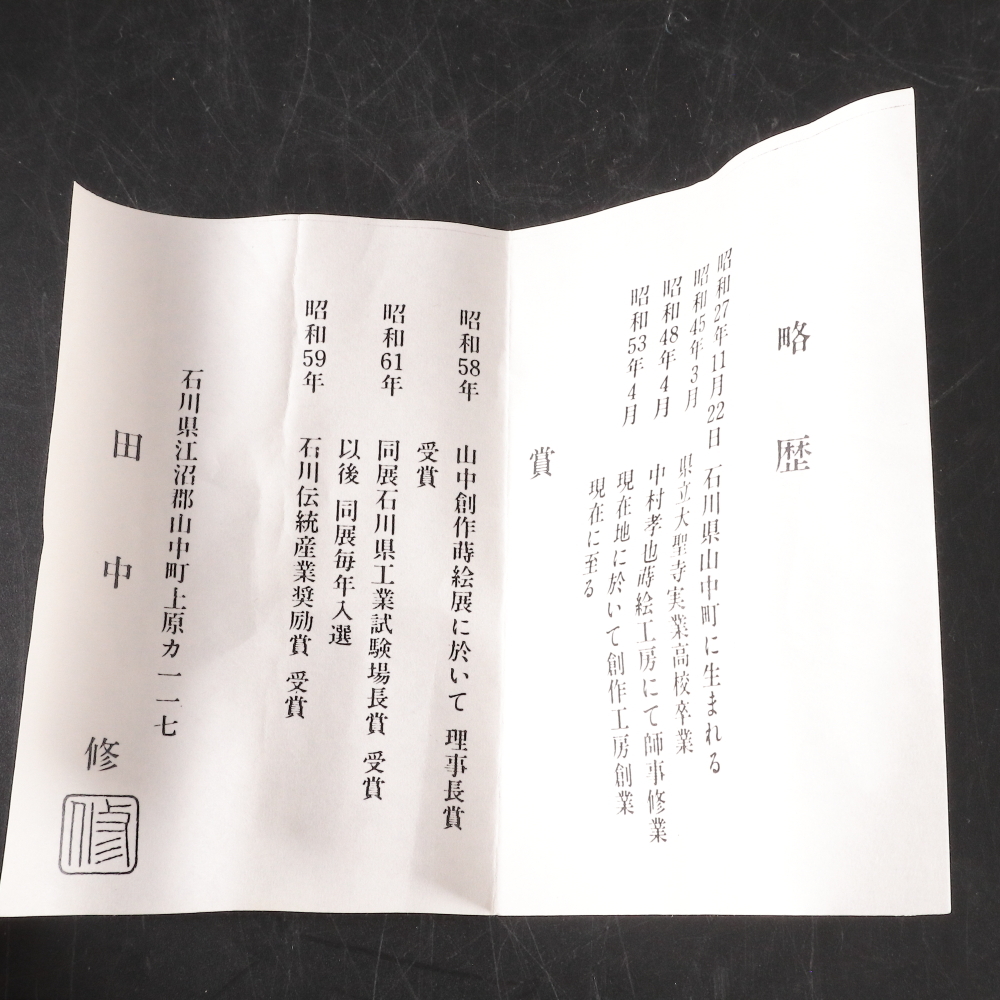 略歴
昭和27年11月22日 石川県山中町に生まれる
昭和45年3月 県立大聖寺実業高校卒業
昭和48年4月 中村孝也蒔絵工房にて師事修業
昭和53年4月 現在地に於いて創作工房創業
現在に至る
賞
昭和58年 山中創作蒔絵展に於いて 理事長賞
受賞
昭和61年 同展石川県工業試験場長賞 受賞
以後 同展毎年入選
昭和59年 石川伝統産業奨励賞 受賞
石川県江沼郡山中町上原カ一一七
田中 修
修